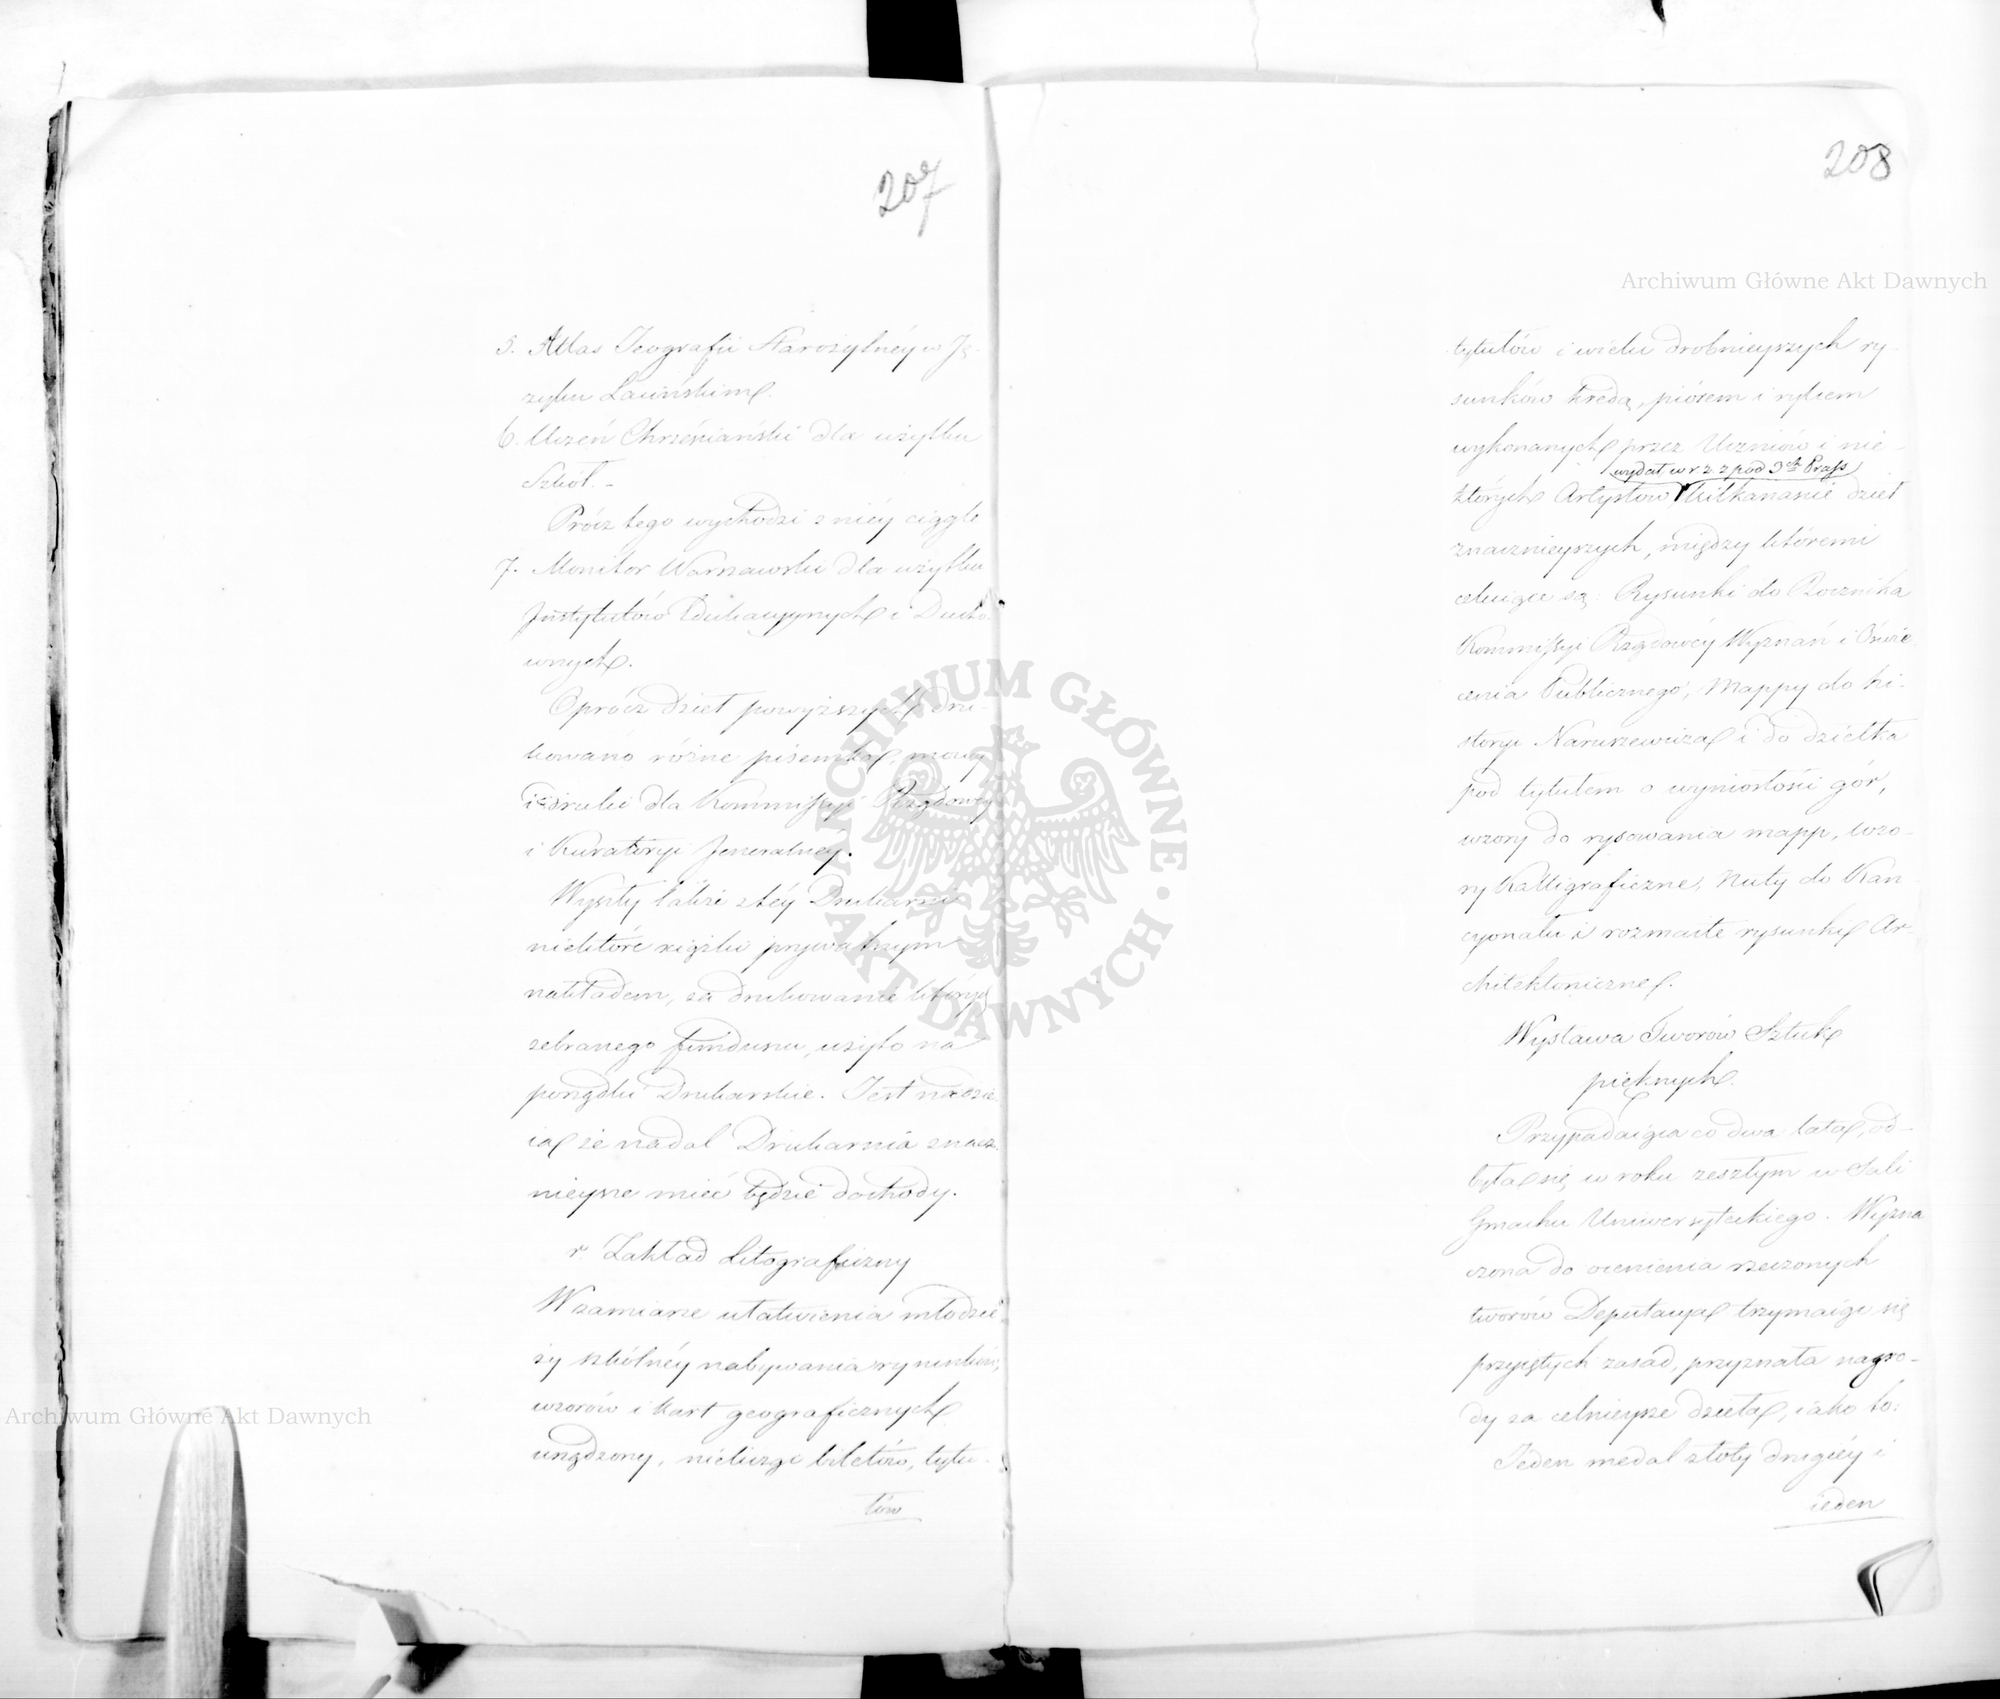 207
5. Atlas Jeografii Starożytnéy w Ję-
zyku Łacińskim.
6. Uczeń Chrześciański dla użytku
Szkół. -
Prócz tego wychodzi z niéy ciągle
7. Monitor Warszawski dla użytku
Instytutów Edukacyjnych i Ducho-
wnych.
Oprócz dzieł powyższych dru-
kowano różne pisemka, mowy
i druki dla Kommissyi Rządowéy
i Kuratoryi Jeneralnéy.
Wyszły także z téy Drukarni
niektóre xiążki prywatnym
nakładem, za drukowanie których
zebranego funduszu, użyto na
porządki Drukarskie. Jest nadzie-
ia że nadal Drukarnia znacz-
nieysze mieć będzie dochody.
r. Zakład Litograficzny
W zamiarze ułatwienia młodzie-
ży szkólnéy nabywania rysunków,
wzorów i kart geograficznych
urządzony, nielicząc biletów, tytu-
łów
208
Archiwum Główne Akt Dawnych
tytułów i wielu drobnieyszych ry-
sunków kredą, piórem i rylcem
wykonanych przez Uczniów i nie-
wydał w r. z. z pod 3ch Prass
których Artystów kilkanaście dzieł
znacznieyszych, między któremi
celuiące są: Rysunki do Rocznika
Kommissyi Rządowéy Wyznań i Oświe
cenia Publicznego, Mappy do hi-
storyi Naruszewicza i do dziełka
pod tytułem o wyniosłości gór,
wzory do rysowania mapp, wzo-
ry Kalligraficzne, Nuty do Kan
cyonału i rozmaite rysunki Ar-
chitektoniczne.
Wystawa Tworów Sztuk
pięknych.
Przypadaiąca co dwa lata, od-
była się w roku zeszłym w Sali
Gmachu Uniwersyteckiego. Wyzna
czona do ocenienia rzeczonych
tworów Deputacya trzymaiąc się
przyiętych zasad, przyznała nagro-
dy za celnieysze dzieła, iako to:
Jeden medal złoty drugiéy i
ieden
ARCHIWUM GŁÓWNE
AKT DAWNYCH
Archiwum Główne Akt Dawnych